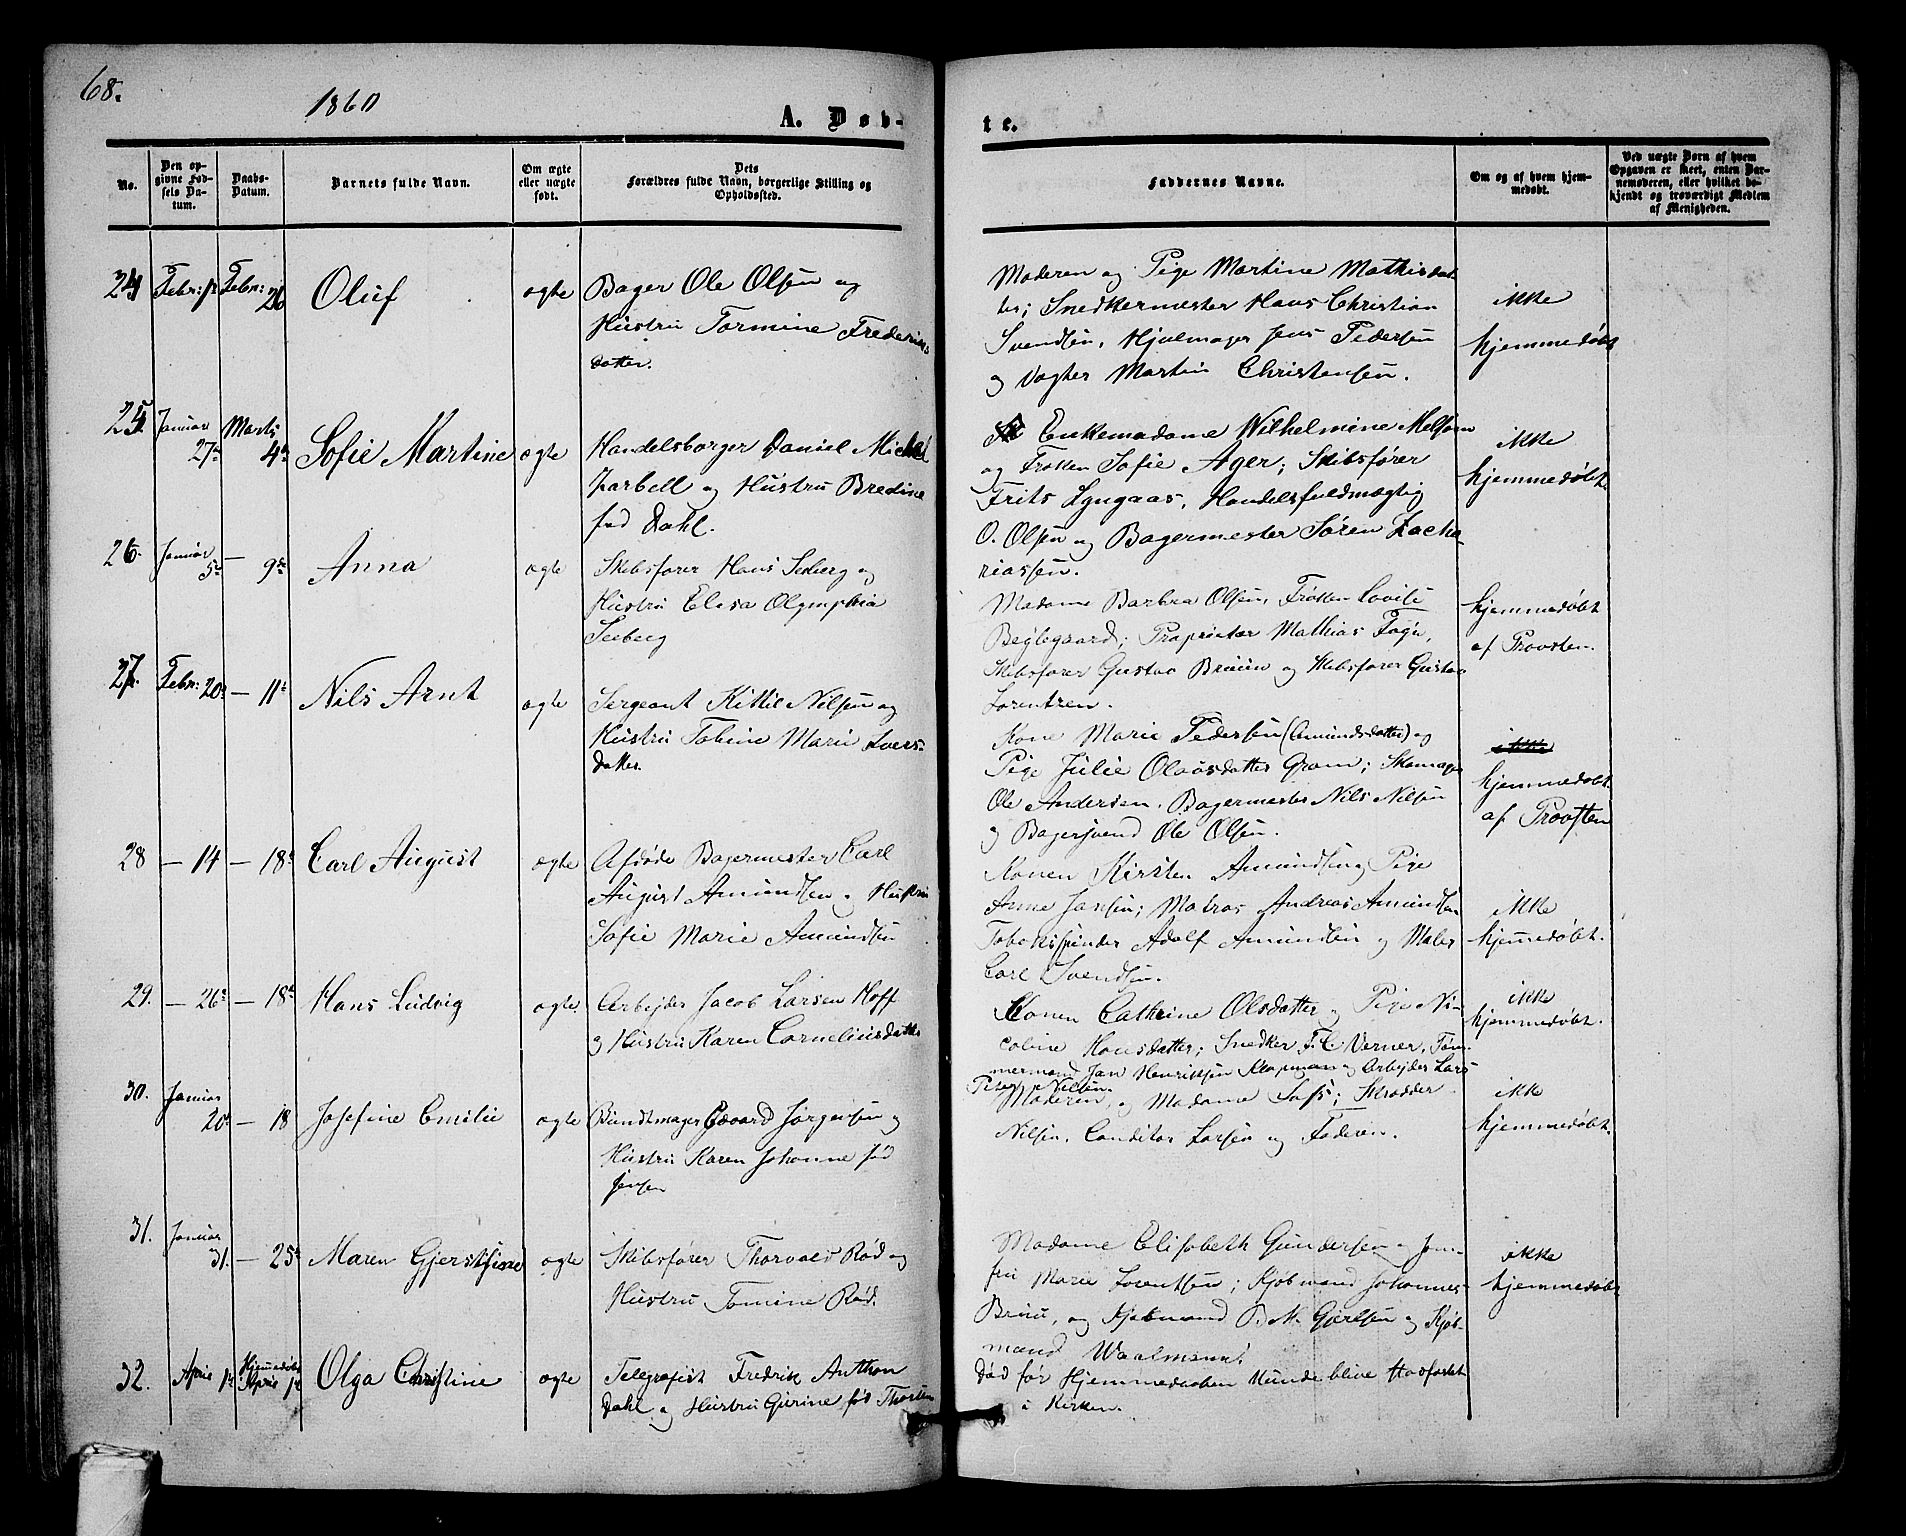 68.
1860
A. Døb-
te.
No.
Den op-
givne Fød-
sels Da-
tum.
Daabs-
Datum.
Barnets fulde Navn.
Om ægte
eller uægte
født.
Dets
Forældres fulde Navn, borgerlige Stilling og
Opholdssted.
Faddernes Navne.
Om og af hvem hjem-
medøbt.
Ved uægte Børn af hvem
Opgaven er skeet, enten Bar-
nemoderen, eller hvilket be-
kjendt og troværdigt Medlem
af Menigheden.
24 Febr: Febr: 26 Oluf ægte
Bager Ole Olsen og
Hustru Tormine Frederiks
datter.
Moderen og Pige Martine Mathisdat
ter; Snedkermester Hans Christian
Svendsen, Hjulmager Jens Pedersen
og Vægter Martin Christensen.
ikke
hjemmedøbt
25 Januar 27de Marts 4de Sofie Martine ægte
Handelsborger Daniel Michael
Zarbell og Hustru Bredine
fød Dahl.
Enkemadame Wilhelmine Melsom
og Frøken Sofie Ager; Skibsfører
Frits Lyngaas, Handelsfuldmægtig
O. Olsen og Bagermester Søren Zacha-
riassen.
ikke
hjemmedøbt.
26. Januar 5te — 9de Anna ægte
Skibsfører Hans Seeberg og
Hustru Elesa Olymphia
Seeberg
Madame Barbra Olsen, Frøken Lovise
Bøylegaard; Proprietær Mathias Føyn,
Skibsfører Gustav Bruun og Skibsfører Gustav
Lorentzen.
hjemmedøbt
af Provsten.
27. Febr: 20de — 11te Nils Arnt ægte
Sergeant Kittil Nilsen og
Hustru Tobine Marie Ivers-
datter.
Kone Marie Pedersen (Amundsdatter) og
Pige Julie Olausdatter Gram; Skomager
Ole Andersen, Bagermester Nils Nilsen
og Bagersvend Ole Olsen.
ikke
hjemmedøbt.
af Provsten
28 — 14 — 18de Carl August ægte
Afdøde Bagermester Carl
August Amundsen og Hustru
Sofie Marie Amundsen
Konen Kirsten Amundsen og Pige
Anne Jansen; Matros Andreas Amundsen
Tobakspinder Adolf Amundsen og Maler
Carl Svendsen.
ikke
hjemmedøbt.
29. — 26de — 18de Hans Ludvig ægte
Arbejder Jacob Larsen Hoff
og Hustru Karen Corneliusdatter
Konen Cathrine Olsdatter og Pige Ni-
coline Hansdatter; Snedker F. C. Verner, Tøm-
mermand Jan Henriksen Klopman og Arbejder Lars
Peter Nilsen.
ikke
hjemmedøbt.
30. Januar 20de — 18 Josefine Emilie ægte
Bundtmager Edvard Jørgensen og
Hustru Karen Johanne fød
Jensen
Moderen og Madame Sass; Skrædder
Nilsen, Conditor Larsen og Faderen.
ikke
hjemmedøbt.
31. Januar 31. — 25de Maren Gjerstsine ægte
Skibsfører Thorvald Rød og
Hustru Tomine Rød.
Madame Elisabeth Gundersen og Jom-
fru Marie Lorentsen; Kjøbmand Johannes
Bruu, og Kjøbmand B. M. Gjertsen og Kjøb-
mand Waalmann.
ikke
hjemmedøbt
32. April 1te Hjemmedøbt April 1te Olga Christine ægte
Telegrafist Fredrik Anthon
Dahl og Hustru Gurine fød Thorsen
Død før Hjemmedaaben kunde blive stadfæstet
i Kirken.